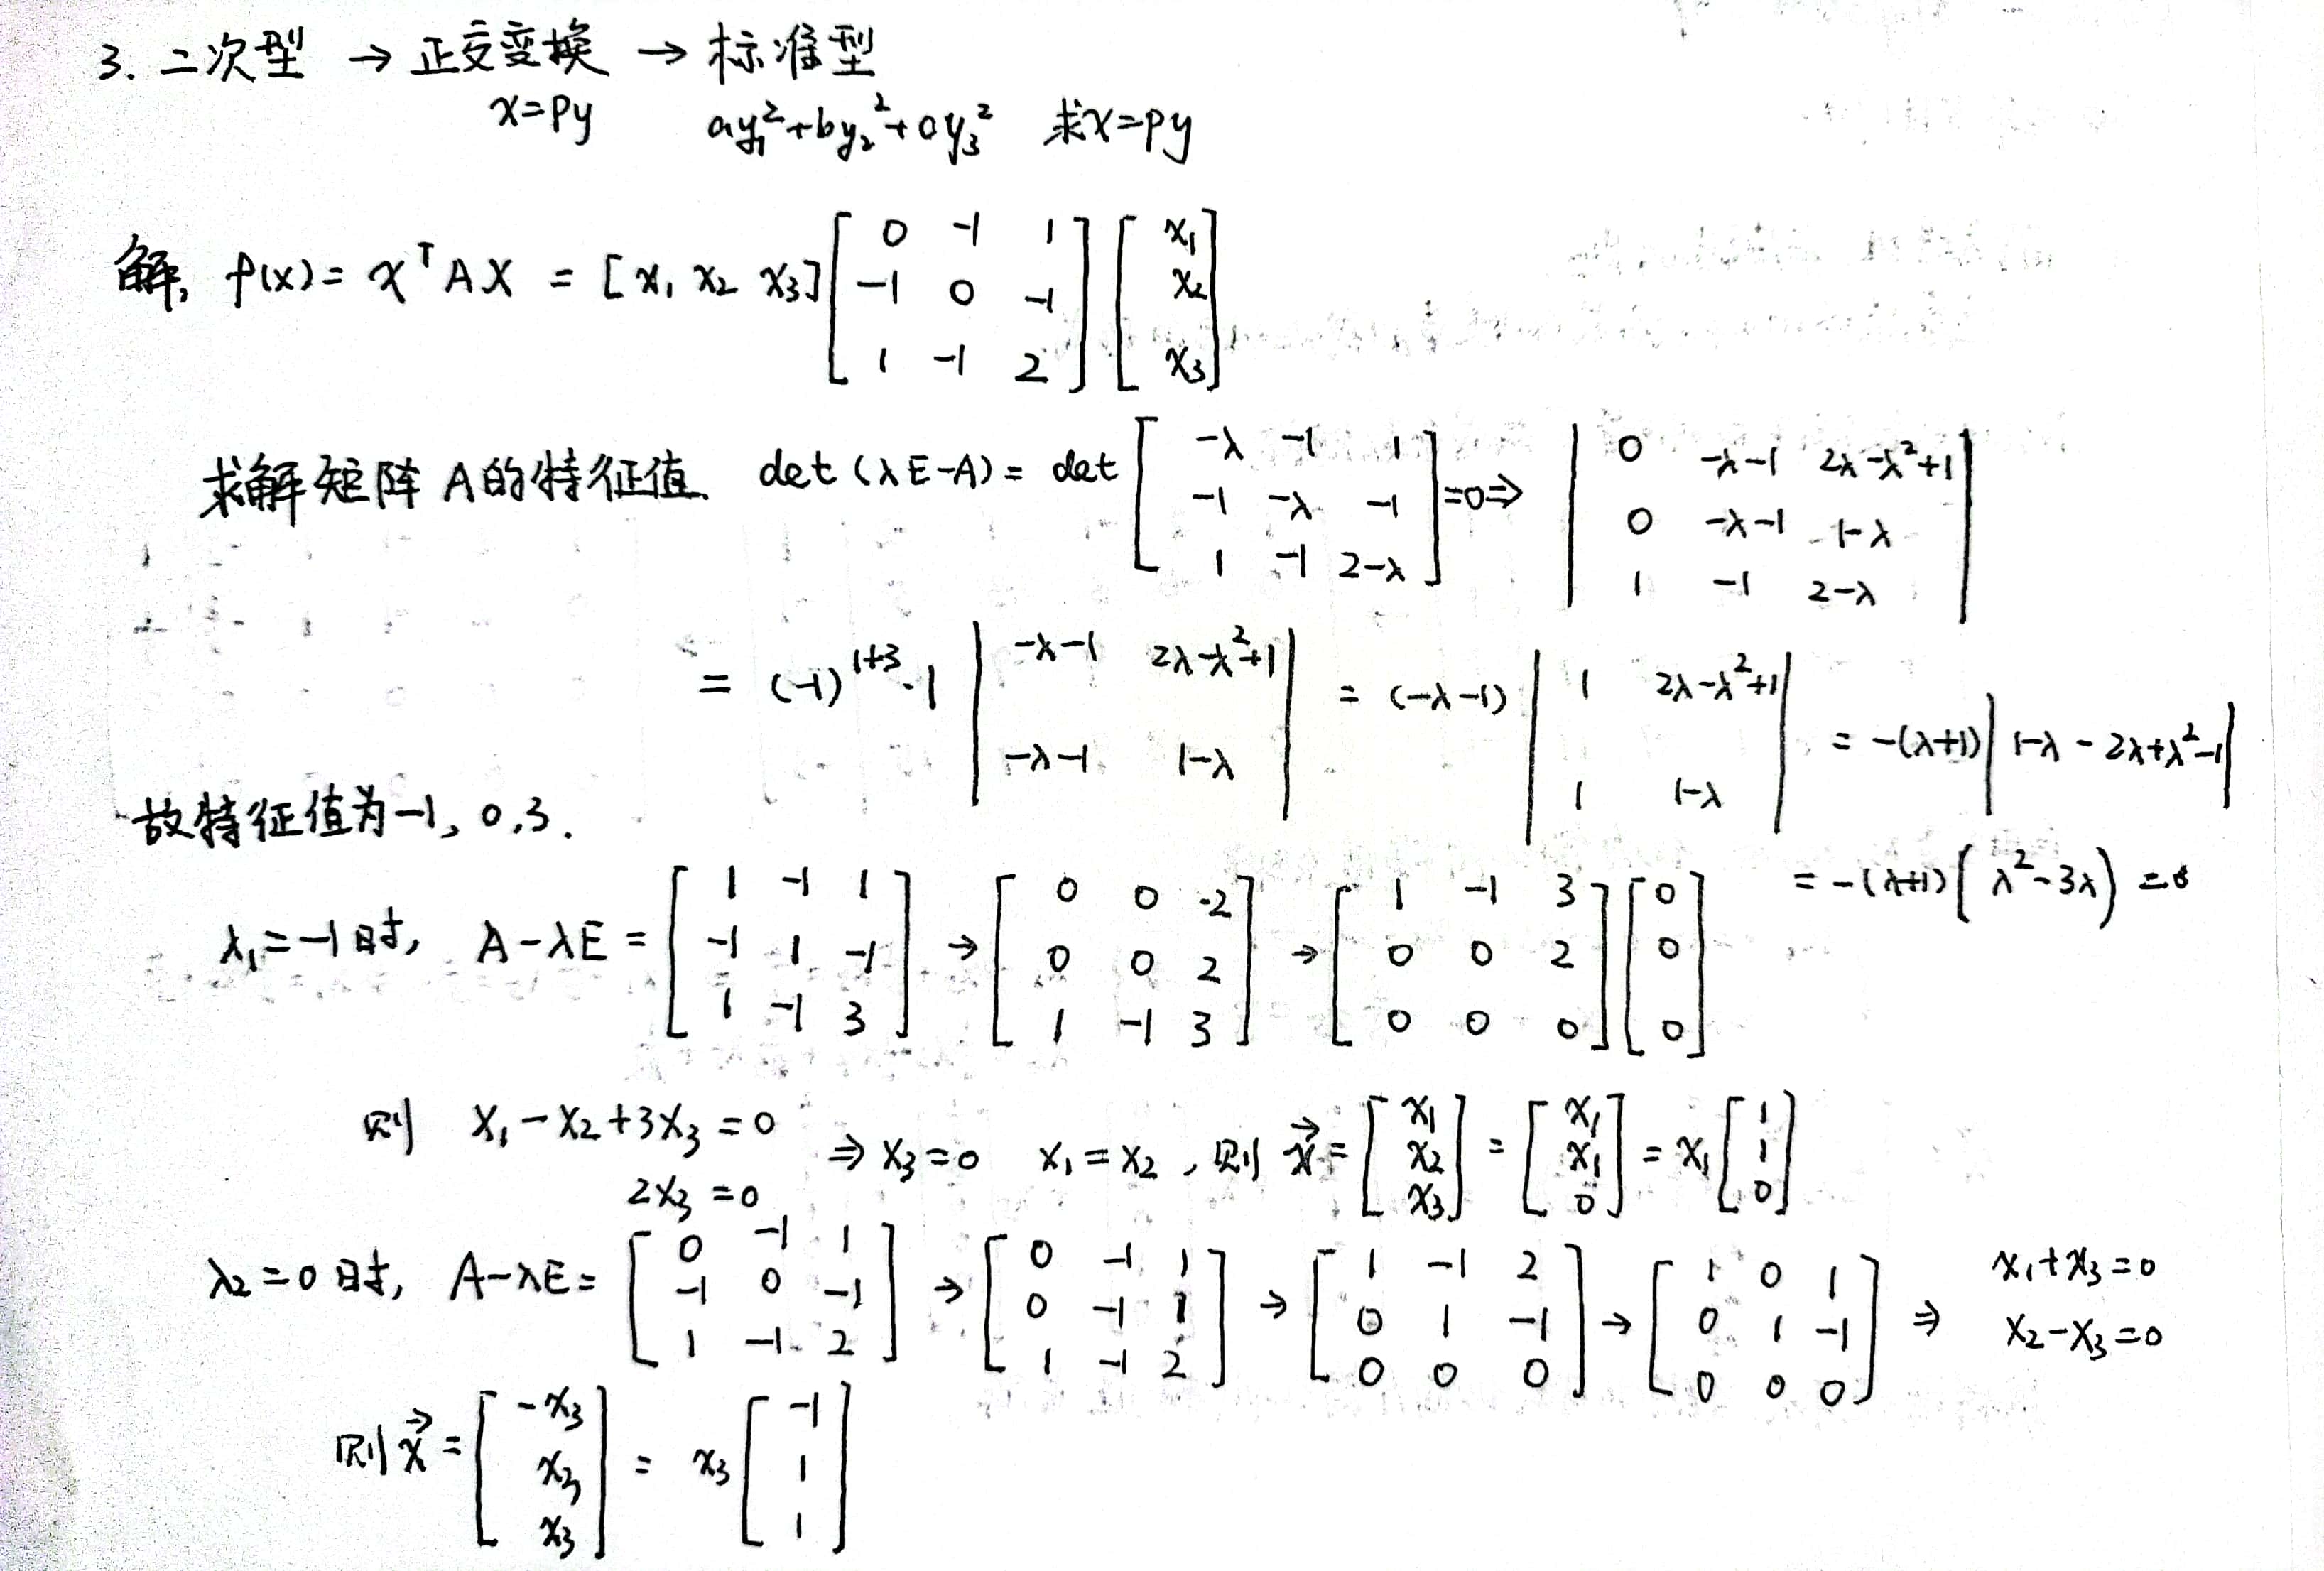 3. 二次型 → 正交变换 → 标准型
x=Py ay₁²+by₂²+0y₃² 求x=Py
解, f(x)= xᵀAX = [x₁ x₂ x₃] [0 -1 1; -1 0 -1; 1 -1 2] [x₁; x₂; x₃]
求解矩阵A的特征值. det(λE-A)= det [-λ -1 1; -1 -λ -1; 1 -1 2-λ] =0⇒ |0 -λ-1 2λ-λ²+1; 0 -λ-1 1-λ; 1 -1 2-λ|
= (-1)¹⁺³·1 |-λ-1 2λ-λ²+1; -λ-1 1-λ| = (-λ-1) |1 2λ-λ²+1; 1 1-λ| = -(λ+1)|1-λ-2λ+λ²-1|
故特征值为-1, 0,3.
= -(λ+1)(λ²-3λ) =0
λ₁=-1时, A-λE = [1 -1 1; -1 1 -1; 1 -1 3] → [0 0 -2; 0 0 2; 1 -1 3] → [1 -1 3; 0 0 2; 0 0 0] [0; 0; 0]
则 x₁-x₂+3x₃=0
2x₃=0 ⇒ x₃=0 x₁=x₂, 则 x⃗= [x₁; x₂; x₃] = [x₁; x₁; 0] = x₁ [1; 1; 0]
λ₂=0时, A-λE= [0 -1 1; -1 0 -1; 1 -1 2] → [0 -1 1; 0 -1 1; 1 -1 2] → [1 -1 2; 0 1 -1; 0 0 0] → [1 0 1; 0 1 -1; 0 0 0] ⇒ x₁+x₃=0
x₂-x₃=0
则x⃗= [-x₃; x₃; x₃] = x₃ [-1; 1; 1]